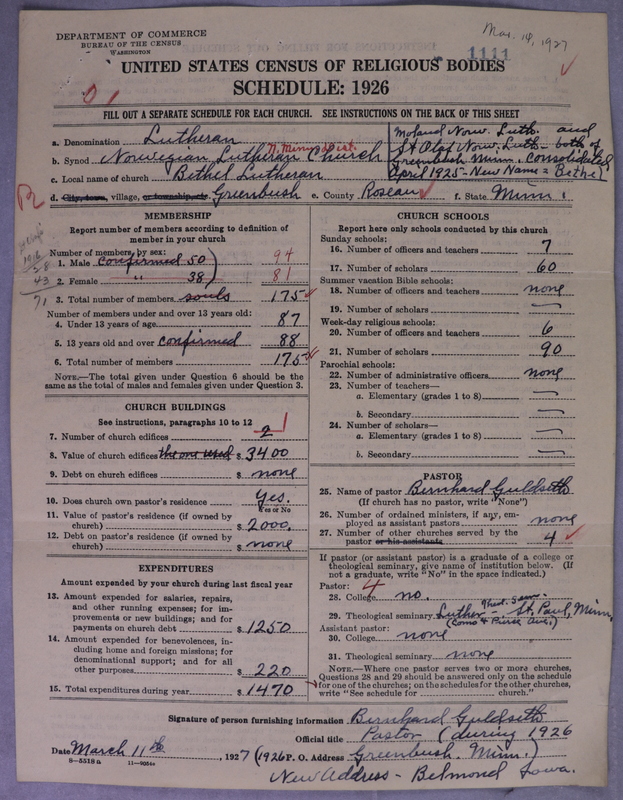 DEPARTMENT OF COMMERCE
BUREAU OF THE CENSUS
WASHINGTON
Mar. 14, 1927
1111
UNITED STATES CENSUS OF RELIGIOUS BODIES
SCHEDULE: 1926
FILL OUT A SEPARATE SCHEDULE FOR EACH CHURCH. SEE INSTRUCTIONS ON THE BACK OF THIS SHEET
a. Denomination Lutheran
b. Synod Norwegian Lutheran Church
N. Minn. Dist.
c. Local name of church Bethel Lutheran
Moland Norw. Luth. and
St Olaf Norw. Luth - both of
Greenbush Minn. consolidated
April 1925 - New Name = Bethel
d. City, town, village, or township, etc. Greenbush e. County Roseau f. State Minn
MEMBERSHIP
Report number of members according to definition of member in your church
Number of members by sex:
1. Male confirmed 50 94
2. Female " 38 81
3. Total number of members souls 175
Number of members under and over 13 years old:
4. Under 13 years of age 87
5. 13 years old and over confirmed 88
6. Total number of members 175
NOTE.—The total given under Question 6 should be the same as the total of males and females given under Question 3.
CHURCH BUILDINGS
See instructions, paragraphs 10 to 12
7. Number of church edifices 2 1
8. Value of church edifices the one used $ 3400
9. Debt on church edifices $ none
10. Does church own pastor's residence Yes.
Yes or No
11. Value of pastor's residence (if owned by church) $ 2000.
12. Debt on pastor's residence (if owned by church) $ none
EXPENDITURES
Amount expended by your church during last fiscal year
13. Amount expended for salaries, repairs, and other running expenses; for improvements or new buildings; and for payments on church debt $ 1250
14. Amount expended for benevolences, including home and foreign missions; for denominational support; and for all other purposes $ 220
15. Total expenditures during year $ 1470
CHURCH SCHOOLS
Report here only schools conducted by this church
Sunday schools:
16. Number of officers and teachers 7
17. Number of scholars 60
Summer vacation Bible schools:
18. Number of officers and teachers none
19. Number of scholars —
Week-day religious schools:
20. Number of officers and teachers 6
21. Number of scholars 90
Parochial schools:
22. Number of administrative officers none
23. Number of teachers—
a. Elementary (grades 1 to 8) —
b. Secondary —
24. Number of scholars—
a. Elementary (grades 1 to 8) —
b. Secondary —
PASTOR
25. Name of pastor Bernhard Guldseth
(If church has no pastor, write "None")
26. Number of ordained ministers, if any, employed as assistant pastors none
27. Number of other churches served by the pastor or his assistants 4
If pastor (or assistant pastor) is a graduate of a college or theological seminary, give name of institution below. (If not a graduate, write "No" in the space indicated.)
Pastor: 4
28. College no.
29. Theological seminary Luther Theol. Sem. - St. Paul, Minn.
(Como & Pierce Ave.)
Assistant pastor:
30. College none
31. Theological seminary none
NOTE.—Where one pastor serves two or more churches, Questions 28 and 29 should be answered only on the schedule for one of the churches; on the schedules for the other churches, write "See schedule for church."
Signature of person furnishing information Bernhard Guldseth
Official title Pastor (during 1926
Date March 11th, 1927 (1926 P. O. Address Greenbush, Minn.)
8—5518a 11—9054
New Address - Belmond Iowa.